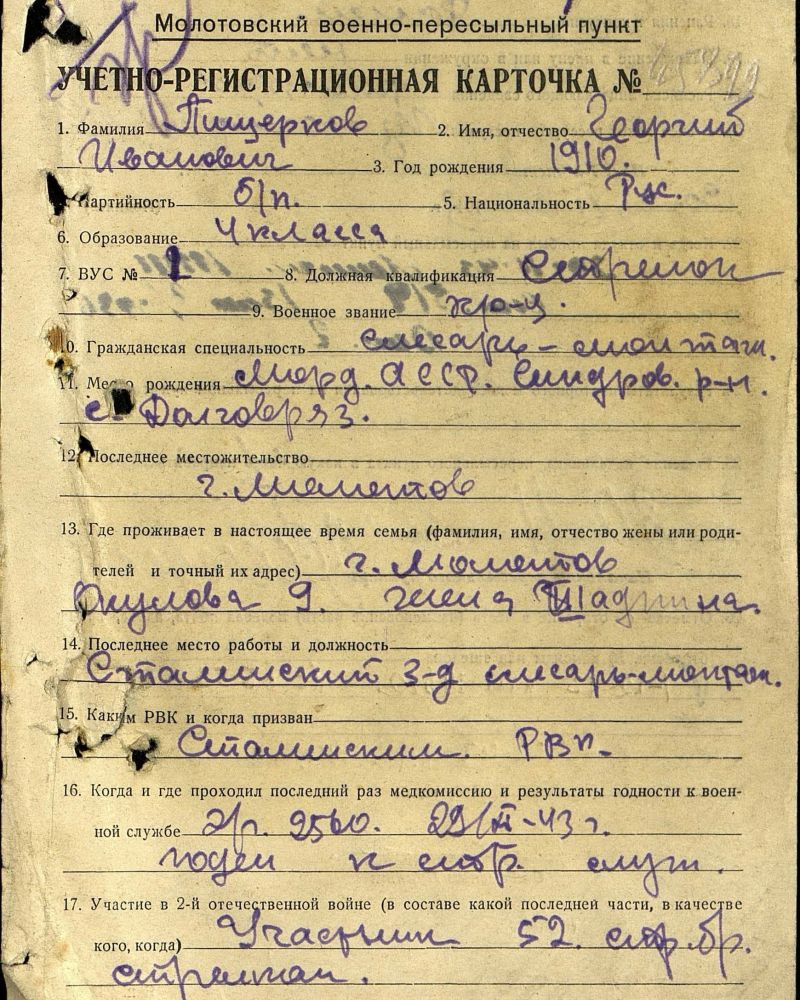 Молотовский военно-пересыльный пункт
УЧЕТНО-РЕГИСТРАЦИОННАЯ КАРТОЧКА №
1. Фамилия Пищерков 2. Имя, отчество Георгий
Иванович 3. Год рождения 1910.
Партийность б/п. 5. Национальность Рус.
6. Образование 4 класса
7. ВУС № 1 8. Должная квалификация Стрелок
9. Военное звание кр-ц.
10. Гражданская специальность слесарь-монтаж.
11. Место рождения Морд. АССР. Синдров. р-н.
с. Долговряз.
12. Последнее местожительство
г. Молотов
13. Где проживает в настоящее время семья (фамилия, имя, отчество жены или роди-
телей и точный их адрес) г. Молотов
Окулова 9. жена Шадрина.
14. Последнее место работы и должность
Сталинский з-д слесарь-монтаж.
15. Каким РВК и когда призван
Сталинским РВК.
16. Когда и где проходил последний раз медкомиссию и результаты годности к воен-
ной службе эг. 2560. 29/III-43 г.
годен к стр. служ.
17. Участие в 2-й отечественной войне (в составе какой последней части, в качестве
кого, когда) Участник 52 стр. бр.
стрелком.